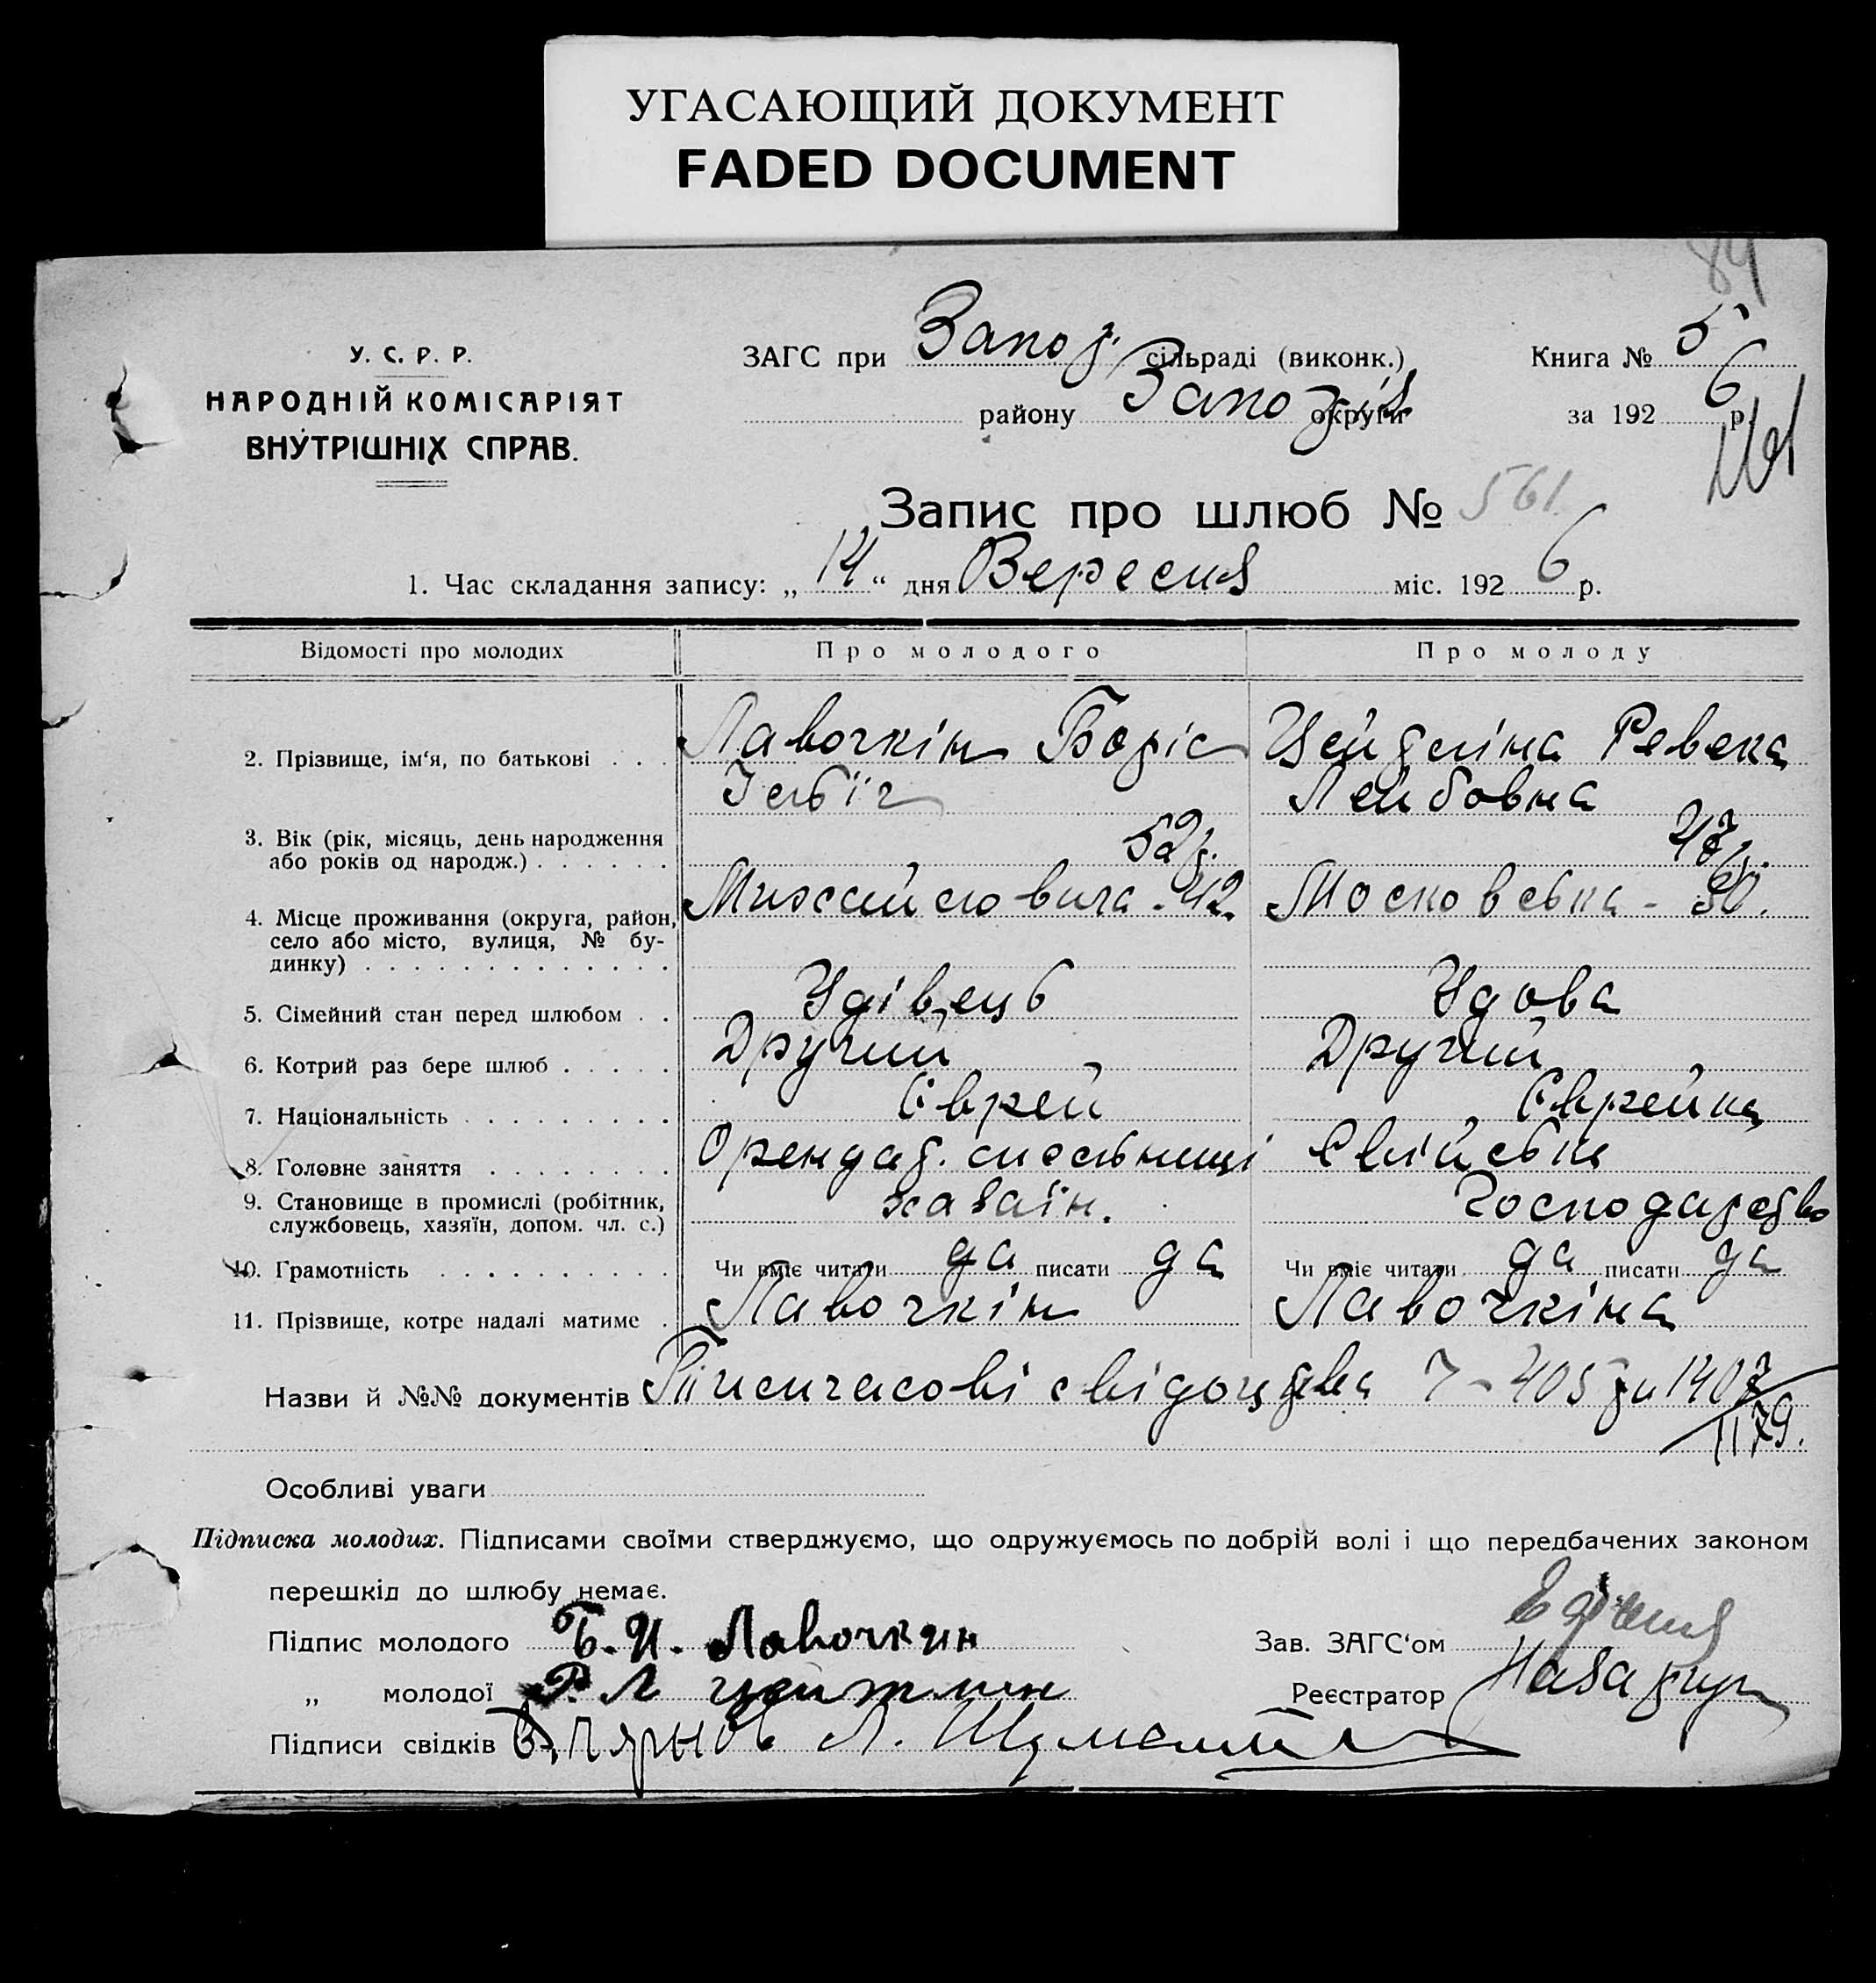 УГАСАЮЩИЙ ДОКУМЕНТ
FADED DOCUMENT
84
У. С. Р. Р.
НАРОДНІЙ КОМІСАРІЯТ
ВНУТРІШНІХ СПРАВ.
ЗАГС при Запор. сільраді (виконк.)
району Запоріз округи
Книга № 5
за 1926 р.
Запис про шлюб № 561.
1. Час складання запису: „14“ дня Вересня міс. 1926 р.
Відомості про молодих Про молодого Про молоду
2. Прізвище, ім‘я, по батькові . . . Лавочкін Боріс Цейтліна Ревека
Лейбовна
3. Вік (рік, місяць, день народження
або років од народж.) . . . . . . 52р. 47р.
4. Місце проживання (округа, район, Михайловича - 42. Московська - 30.
село або місто, вулиця, № бу-
динку) . . . . . . . . . . . . .
5. Сімейний стан перед шлюбом . . Удівець Удова
6. Котрий раз бере шлюб . . . . . Другий Другий
7. Національність . . . . . . . . . Єврей Єврейка
8. Головне заняття . . . . . . . . Орендар.
9. Становище в промислі (робітник,
службовець, хазяїн, допом. чл. с.) хазаїн. Господарство
10. Грамотність . . . . . . . . . . Чи вміє читати да писати да Чи вміє читати да писати да
11. Прізвище, котре надалі матиме . Лавочкін Лавочкіна
Назви й №№ документів Тимчасові свідоцтва 7-405 та 1407/
1179.
Особливі уваги
Підписка молодих. Підписами своїми стверджуємо, що одружуємось по добрій волі і що передбачених законом
перешкід до шлюбу немає.
Підпис молодого Б. И. Лавочкин
Зав. ЗАГС‘ом
„ молодої Р. Л Цейтлин
Реєстратор
Підписи свідків